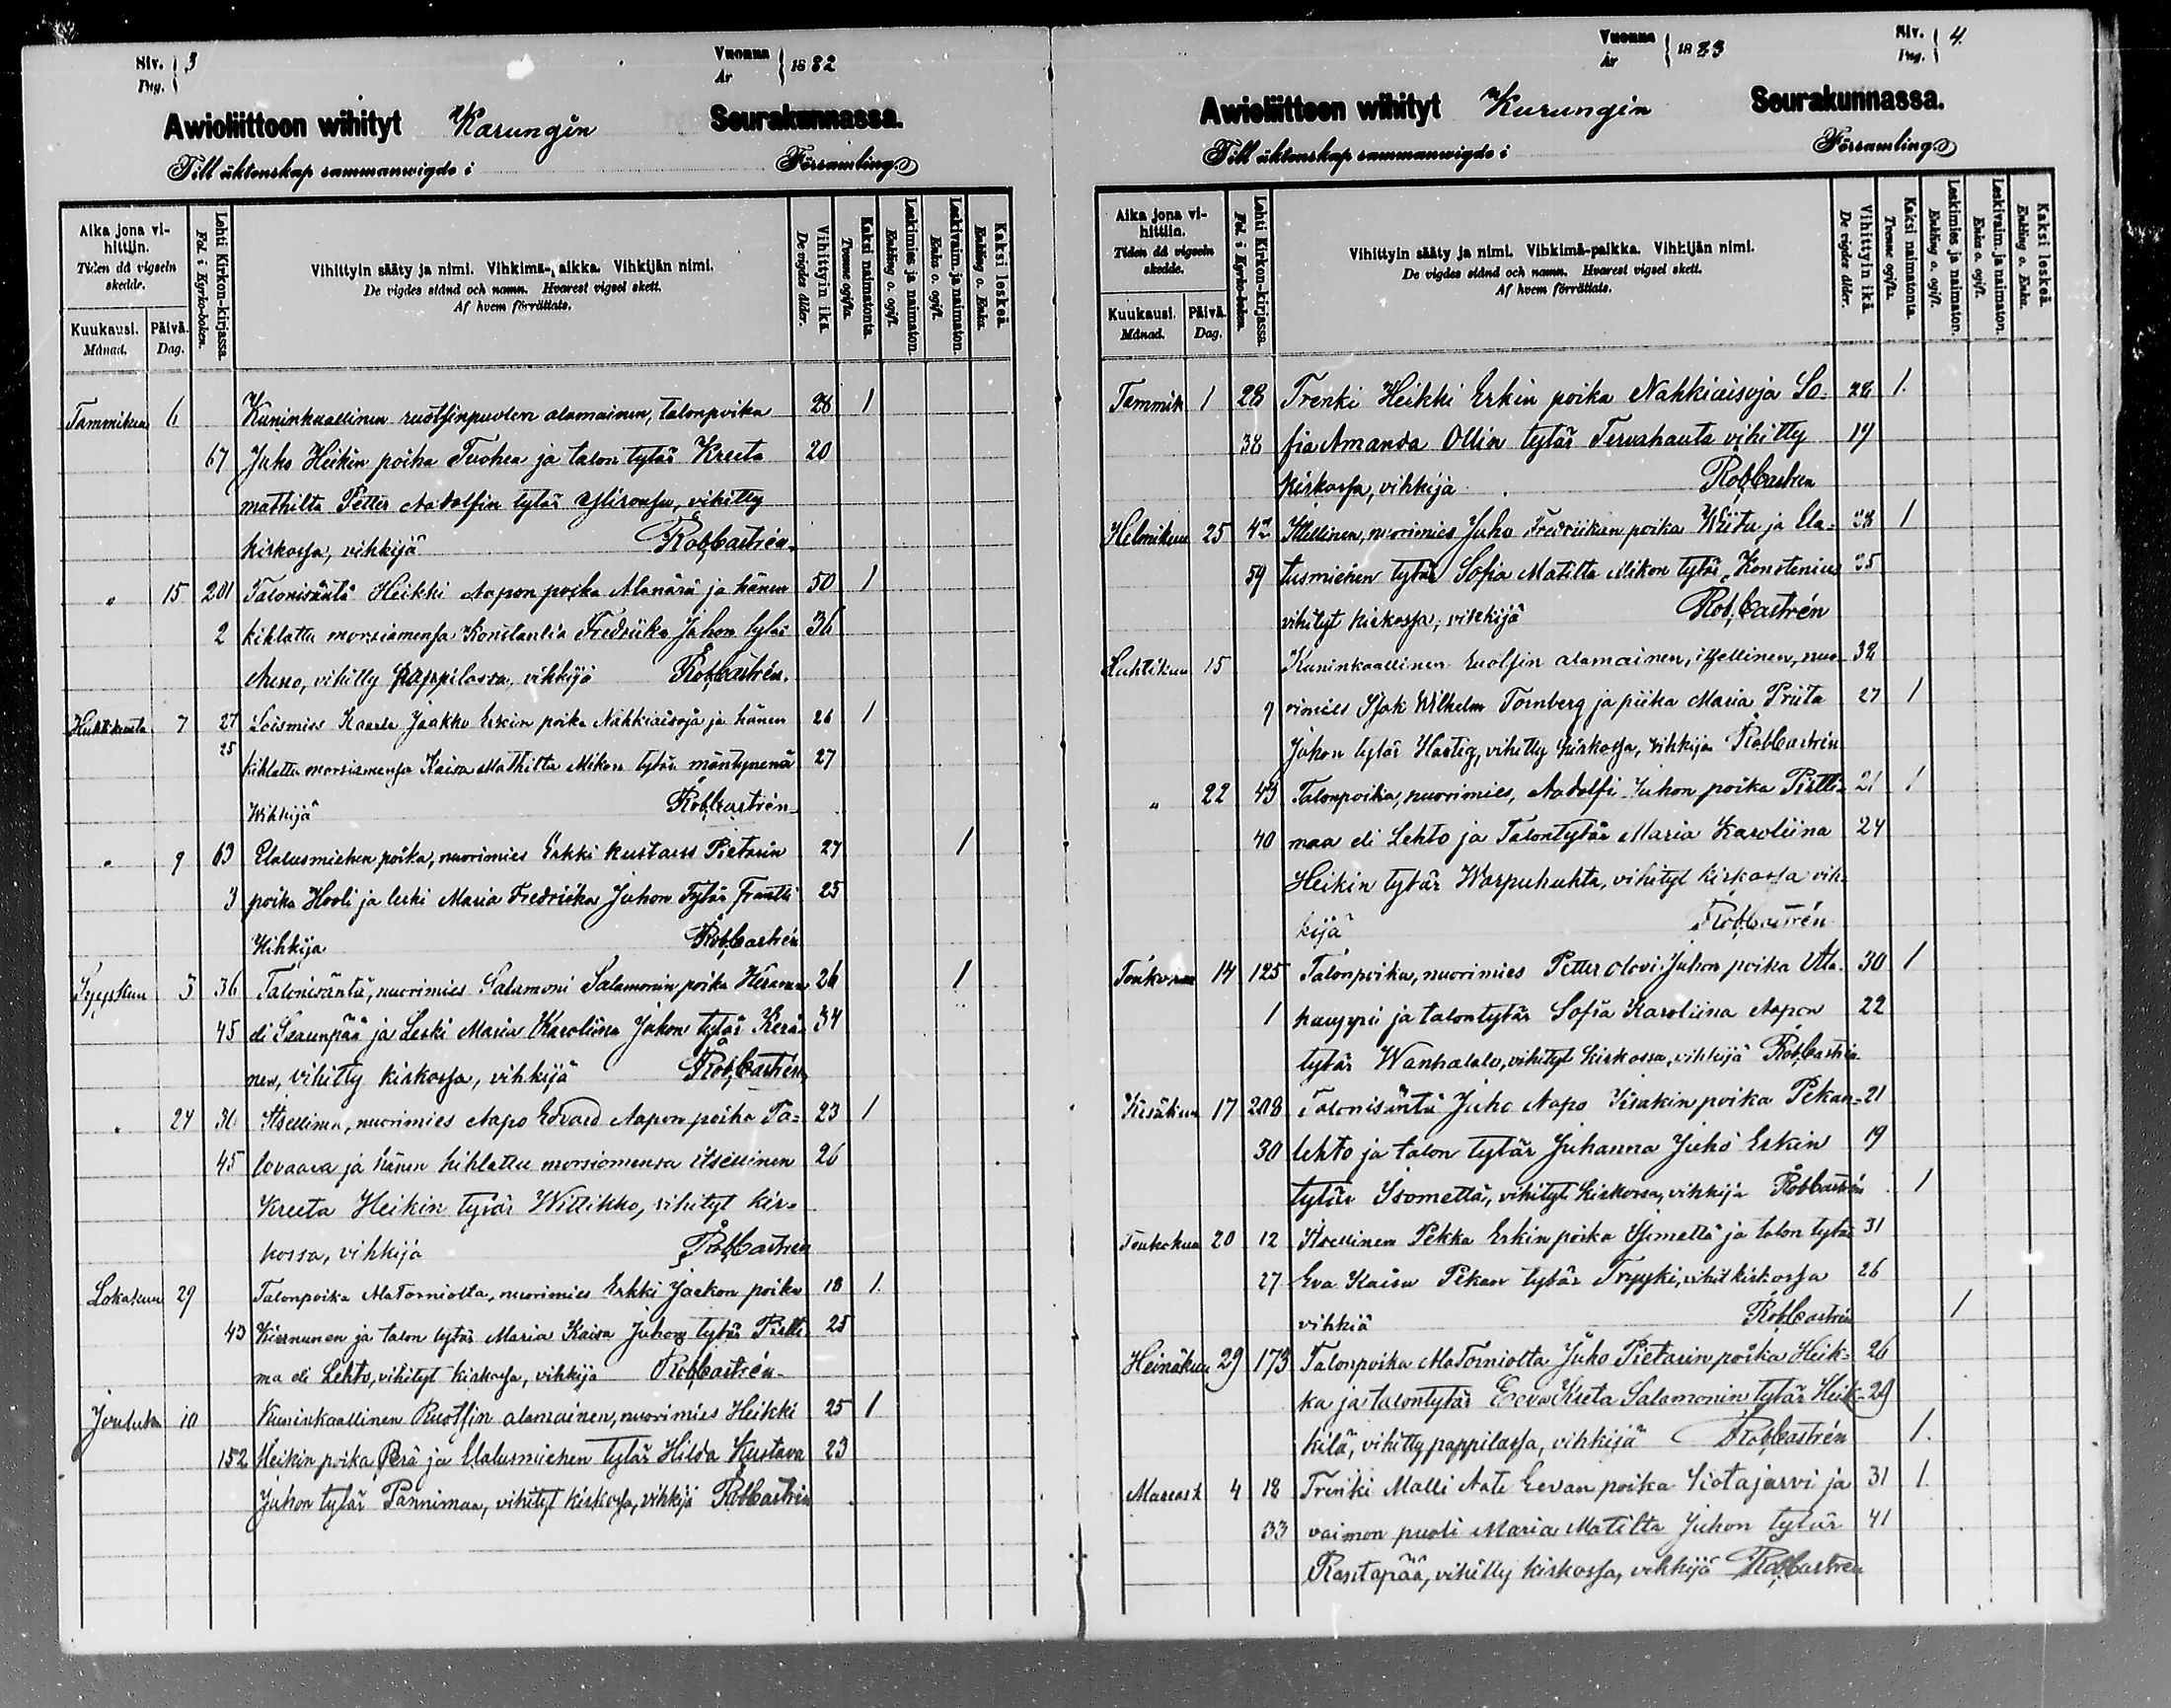 Siv. 3
Pag.
Vuonna 1882
År
Awioliittoon wihityt Karungin Seurakunnassa.
Till äktenskap sammanwigde i Församling
Aika jona vi-
hittiin.
Tiden då vigseln
skedde.
Kuukausi. Päivä.
Månad. Dag.
Lehti Kirkon-kirjassa.
Fol. i Kyrko-boken.
Vihittyin sääty ja nimi. Vihkimä-paikka. Vihkijän nimi.
De vigdes stånd och namn. Hvarest vigsel skett.
Af hvem förrättats.
Vihittyin ikä.
De vigdes ålder.
Kaksi naimatonta.
Tvenne ogifta.
Leskimies ja naimaton.
Enkling o. ogift.
Leskivaim. ja naimaton.
Enka o. ogift.
Kaksi leskeä.
Enkling o. Enka.
Tammikuu 6 Kuninkaallinen ruotsinpuolen alamainen, talonpoika 28 1
67 Juho Heikin poika Tuohea ja talon tytär Kreeta 20
mathilta Petter Aadolfin tytär, vihitty
kirkossa, vihkijä Rob. Castrén
" 15 201 Talonisäntä Heikki Aapon poika Alanärä ja hänen 50 1
2 kihlattu morsiamensa Konstantia Fredrika Juhon tytär 36
vihitty pappilassa, vihkijä Rob. Castrén.
Huhtikuuta 7 27 Loismies Kaarle Jaakko Erkin poika Nahkiaisoja ja hänen 26 1
25 kihlattu morsiamensa Kaisa Mathilta Mikon tytär mäntynenä 27
Wihkijä Rob. Castrén
" 9 63 Elatusmiehen poika, nuorimies Erkki Kustavs Pietarin 27 1
3 poika Hooli ja leski Maria Fredriika Juhon Tytär Frantti 25
Wihkijä Rob. Castrén
Syyskuu 3 36 Talonisäntä, nuorimies Salamoni Salamonin poika 26 1
45 eli Saaunpää ja Leski Maria Karoliina Juhon tytär Kerä- 34
nen, vihitty kirkossa, vihkijä Rob. Castrén
" 24 30 Itsellinen, nuorimies Aapo Edvard Aapon poika Ta- 23 1
45 lovaara ja hänen kihlattu morsiamensa itsellinen 26
Kreeta Heikin tytär Wittikko, vihityt kir-
kossa, vihkijä Rob. Castrén
Lokakuu 29 Talonpoika Alatorniolta, nuorimies Erkki Jaakon poika 18 1.
43 Kiernunen ja talon tytär Maria Kaisa Juhon tytär Pirtti 25
ma eli Lehto, vihityt kirkossa, vihkijä Rob. Castrén
Jouluku 10 Kuninkaallinen Ruotsin alamainen, nuorimies Heikki 25 1
152 Heikin poika Perä ja Elatusmiehen tytär Hilda Kustava 23
Juhon tytär Pannimaa, vihityt kirkossa, vihkijä Rob. Castrén
Siv. 4.
Pag.
Vuonna 1883
År
Awioliittoon wihityt Karungin Seurakunnassa.
Till äktenskap sammanwigde i Församling
Aika jona vi-
hittiin.
Tiden då vigseln
skedde.
Kuukausi. Päivä.
Månad. Dag.
Lehti Kirkon-kirjassa.
Fol. i Kyrko-boken.
Vihittyin sääty ja nimi. Vihkimä-paikka. Vihkijän nimi.
De vigdes stånd och namn. Hvarest vigsel skett.
Af hvem förrättats.
Vihittyin ikä.
De vigdes ålder.
Kaksi naimatonta.
Tvenne ogifta.
Leskimies ja naimaton.
Enkling o. ogift.
Leskivaim. ja naimaton.
Enka o. ogift.
Kaksi leskeä.
Enkling o. Enka.
Tammik 1 28 Trenki Heikki Erkin poika Nahkiaisoja So- 28 1.
38 fia Amanda Ollin tytär Tervahauta vihitty 19
kirkossa, vihkijä Rob. Castrén
Helmikuu 25 Itsellinen, nuorimies Juho Fredriikan poika Wiita ja Ela- 1
59 tusmiehen tytär Sofia Matilta Mikon tytär Konstenius 35
vihityt kirkossa, vihkijä Rob. Castrén
Huhtikuu 15 Kuninkaallinen Ruotsin alamainen, itsellinen, nuo- 32
9 rimies Isak Wilhelm Tornberg ja piika Maria Priita 27 1
Juhon tytär Hartig, vihitty kirkossa, vihkijä Rob. Castrén
" 22 43 Talonpoika, nuorimies, Aadolfi Juhon poika Pirtti- 21 1
40 maa eli Lehto ja Talontytär Maria Karoliina 24
Heikin tytär Warpuhuhta, vihityt kirkossa vih-
kijä Rob. Castrén
Toukokuu 14 125 Talonpoika, nuorimies Petter Olovi Juhon poika Ala- 30 1
1 kauppi ja talontytär Sofia Karoliina Aapon 22
tytär Wanhatalo, vihityt kirkossa, vihkijä Rob. Castrén
Kesäkuu 17 208 Talonisäntä Juho Aapo Iisakin poika Pekan- 21
30 lehto ja talon tytär Juhanna Juho Erkin 19
tytär Isomettä, vihityt kirkossa, vihkijä Rob. Castrén 1
Toukokuu 20 12 Itsellinen Pekka Erkin poika Isomettä ja talon tytär 31
27 Eva Kaisa Pekan tytär Tryyki, vihit kirkossa 26
vihkiä Rob. Castrén 1
Heinäkuu 29 173 Talonpoika Alatorniolta Juho Pietarin poika Heik- 26
ka ja talontytär Eeva Kreeta Salamonin tytär Heik- 29
kilä, vihitty pappilassa, vihkijä Rob. Castrén 1.
Marrask 4 18 Trenki Malli Aate Eevan poika Kotajärvi ja 31 1.
33 vaimon puoli Maria Matilta Juhon tytär 41
Rasitapää, vihitty kirkossa, vihkijä Rob. Castrén